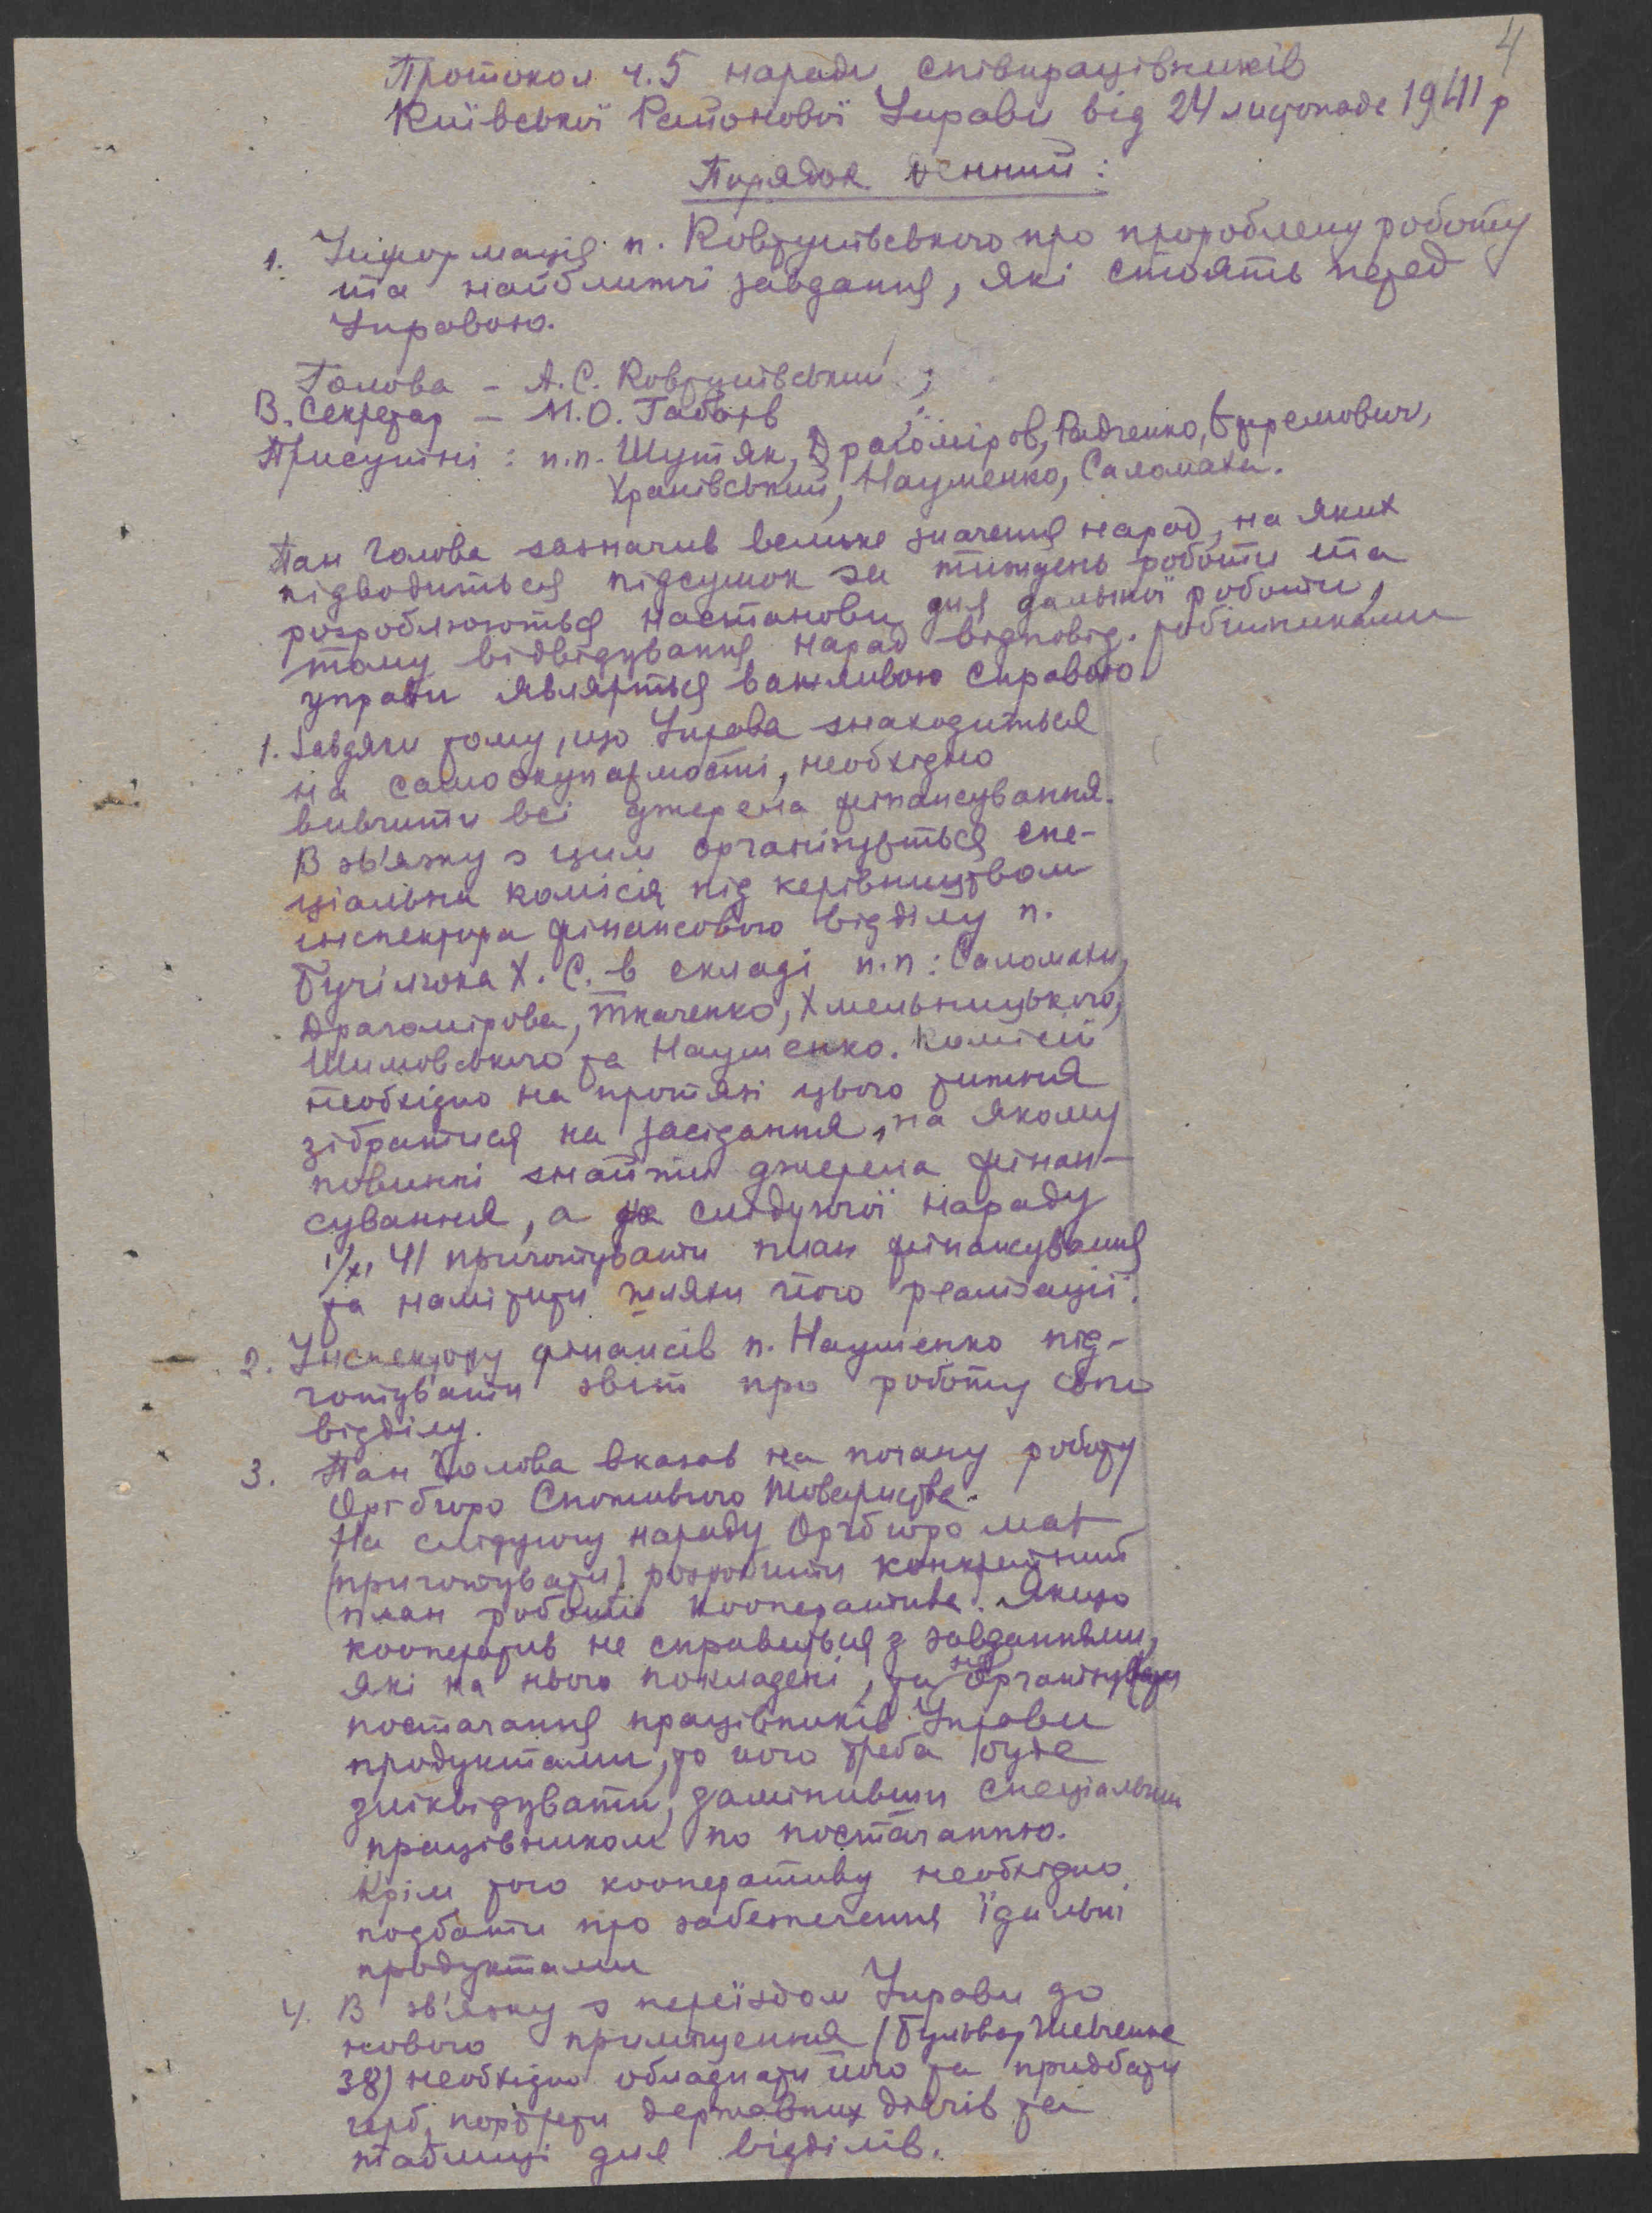 4
Протокол ч.5 наради співпрацівників
Київської Районової Управи від 24 листопада 1941 р
Порядок денний:
1. Інформація п. Ковтунівського про пророблену роботу
та найближчі завдання, які стоять перед
Управою.
Голова – А.С. Ковтунівський;
В. Секретар – М.О.
Присутні: п.п. Шутяк, Драгоміров, Радченко, Єфремович,
Хранівський, Науменко, Саломаха.
Пан Голова зазначив велике значення нарад, на яких
підводиться підсумок за тиждень роботи та
розроблюються настанови для дальшої роботи,
тому відвідування нарад відповід. робітниками
управи являється важливою справою.
1. Завдяки тому, що Управа знаходиться
на самоокупаємості, необхідно
вивчити всі джерела фінансування.
В зв'язку з цим організується спе-
ціальна комісія під керівництвом
інспектора фінансового відділу п.
Х. С. в складі п.п: Саломахи,
Драгомірова, Ткаченко, Хмельницького,
Шимовського та Науменко. Комісії
необхідно на протязі цього тижня
зібратися на засідання, на якому
повинні знайти джерела фінан-
сування, а на слідуючої нараду
1/XII 41 приготувати план фінансування
та намітити шляхи його реалізації.
2. Інспектору фінансів п. Науменко під-
готувати звіт про роботу свого
відділу.
3. Пан Голова вказав на погану роботу
Оргбюро Споживчого Товариства.
На слідуючу нараду Оргбюро має
(приготувати) розробити конкретний
план роботи кооператива. Якщо
кооператив не справиться з завданнями,
які на нього покладені, та не організує
постачання працівників Управи
продуктами, то його треба буде
зліквідувати, замінивши спеціальним
працівником по постачанню.
Крім того кооперативу необхідно
подбати про забезпечення їдальні
продуктами
4. В зв'язку з переїздом Управи до
нового приміщення (Бульвар Шевченка
38) необхідно обладнати його та придбати
герб, портрети державних діячів та
таблиці для відділів.